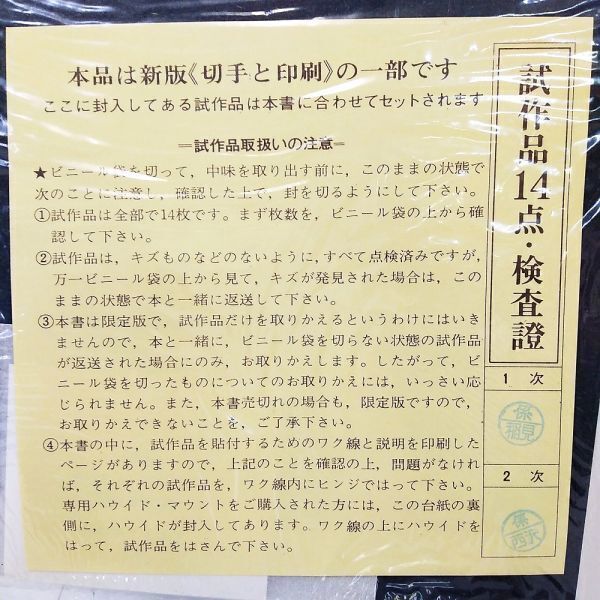 本品は新版《切手と印刷》の一部です
ここに封入してある試作品は本書に合わせてセットされます
=試作品取扱いの注意=
★ビニール袋を切って，中味を取り出す前に，このままの状態で
次のことに注意し，確認した上で，封を切るようにして下さい。
①試作品は全部で14枚です。まず枚数を，ビニール袋の上から確
認して下さい。
②試作品は，キズものなどのないように，すべて点検済みですが，
万一ビニール袋の上から見て，キズが発見された場合は，この
ままの状態で本と一緒に返送して下さい。
③本書は限定版で，試作品だけを取りかえるというわけにはいき
ませんので，本と一緒に，ビニール袋を切らない状態の試作品
が返送された場合にのみ，お取りかえします。したがって，ビ
ニール袋を切ったものについてのお取りかえには，いっさい応
じられません。また，本書売切れの場合も，限定版ですので，
お取りかえできないことを，ご了承下さい。
④本書の中に，試作品を貼付するためのワク線と説明を印刷した
ページがありますので，上記のことを確認の上，問題がなけれ
ば，それぞれの試作品を，ワク線内にヒンジではって下さい。
専用ハウイド・マウントをご購入された方には，この台紙の裏
側に，ハウイドが封入してあります。ワク線の上にハウイドを
はって，試作品をはさんで下さい。
試作品14点・検査證
1 次
係
稲見
2 次
係